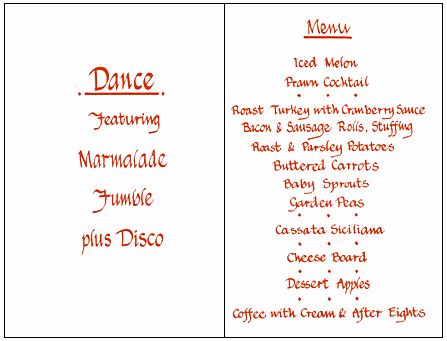 Dance
Featuring
Marmalade
Fumble
plus Disco
Menu
Iced Melon
Prawn Cocktail
Roast Turkey with Cranberry Sauce
Bacon & Sausage Rolls, Stuffing
Roast & Parsley Potatoes
Buttered Carrots
Baby Sprouts
Garden Peas
Cassata Siciliana
Cheese Board
Dessert Apples
Coffee with Cream & After Eights